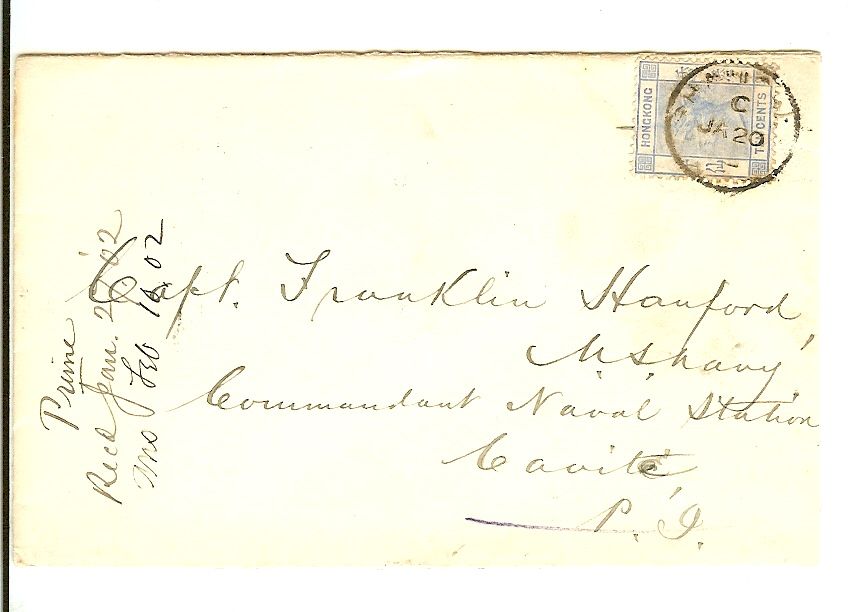 HONGKONG
TEN CENTS
C
JA 20
Capt. Franklin Hanford,
U.S. Navy
Commandant Naval Station
Cavite,
P. I.
Prime
Recd Jan. 27 '02
Ans Feb 16 02